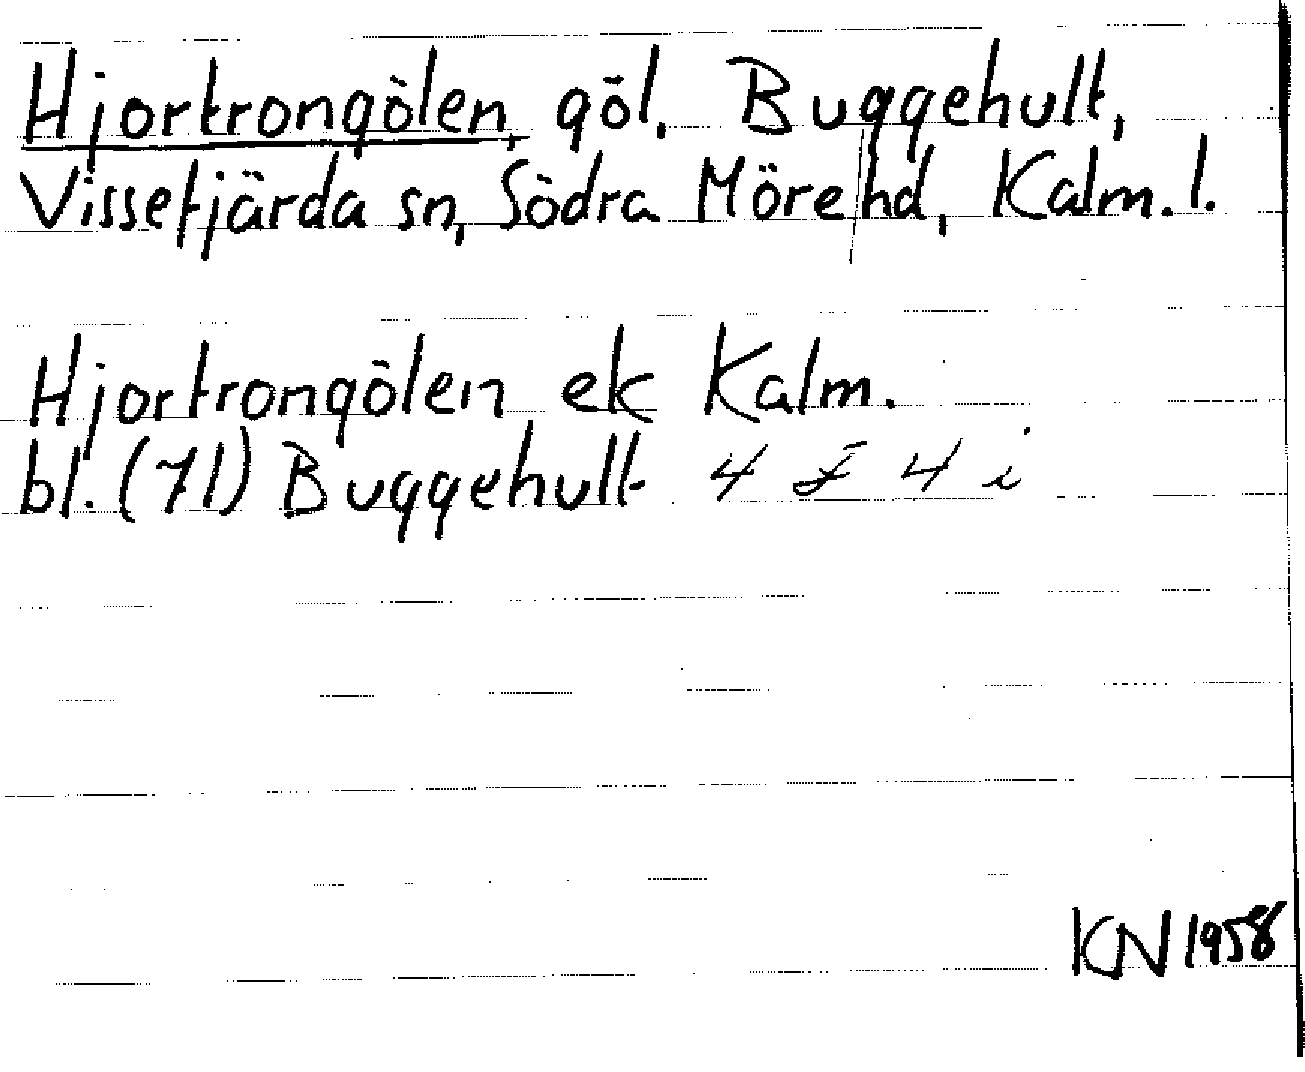 Hjortrongölen, göl, Buggehult,
Vissefjärda sn, Södra Möre hd, Kalm. l.
Hjortrongölen ek Kalm.
bl. (71) Buggehult 4 f 4 i
KN 1958